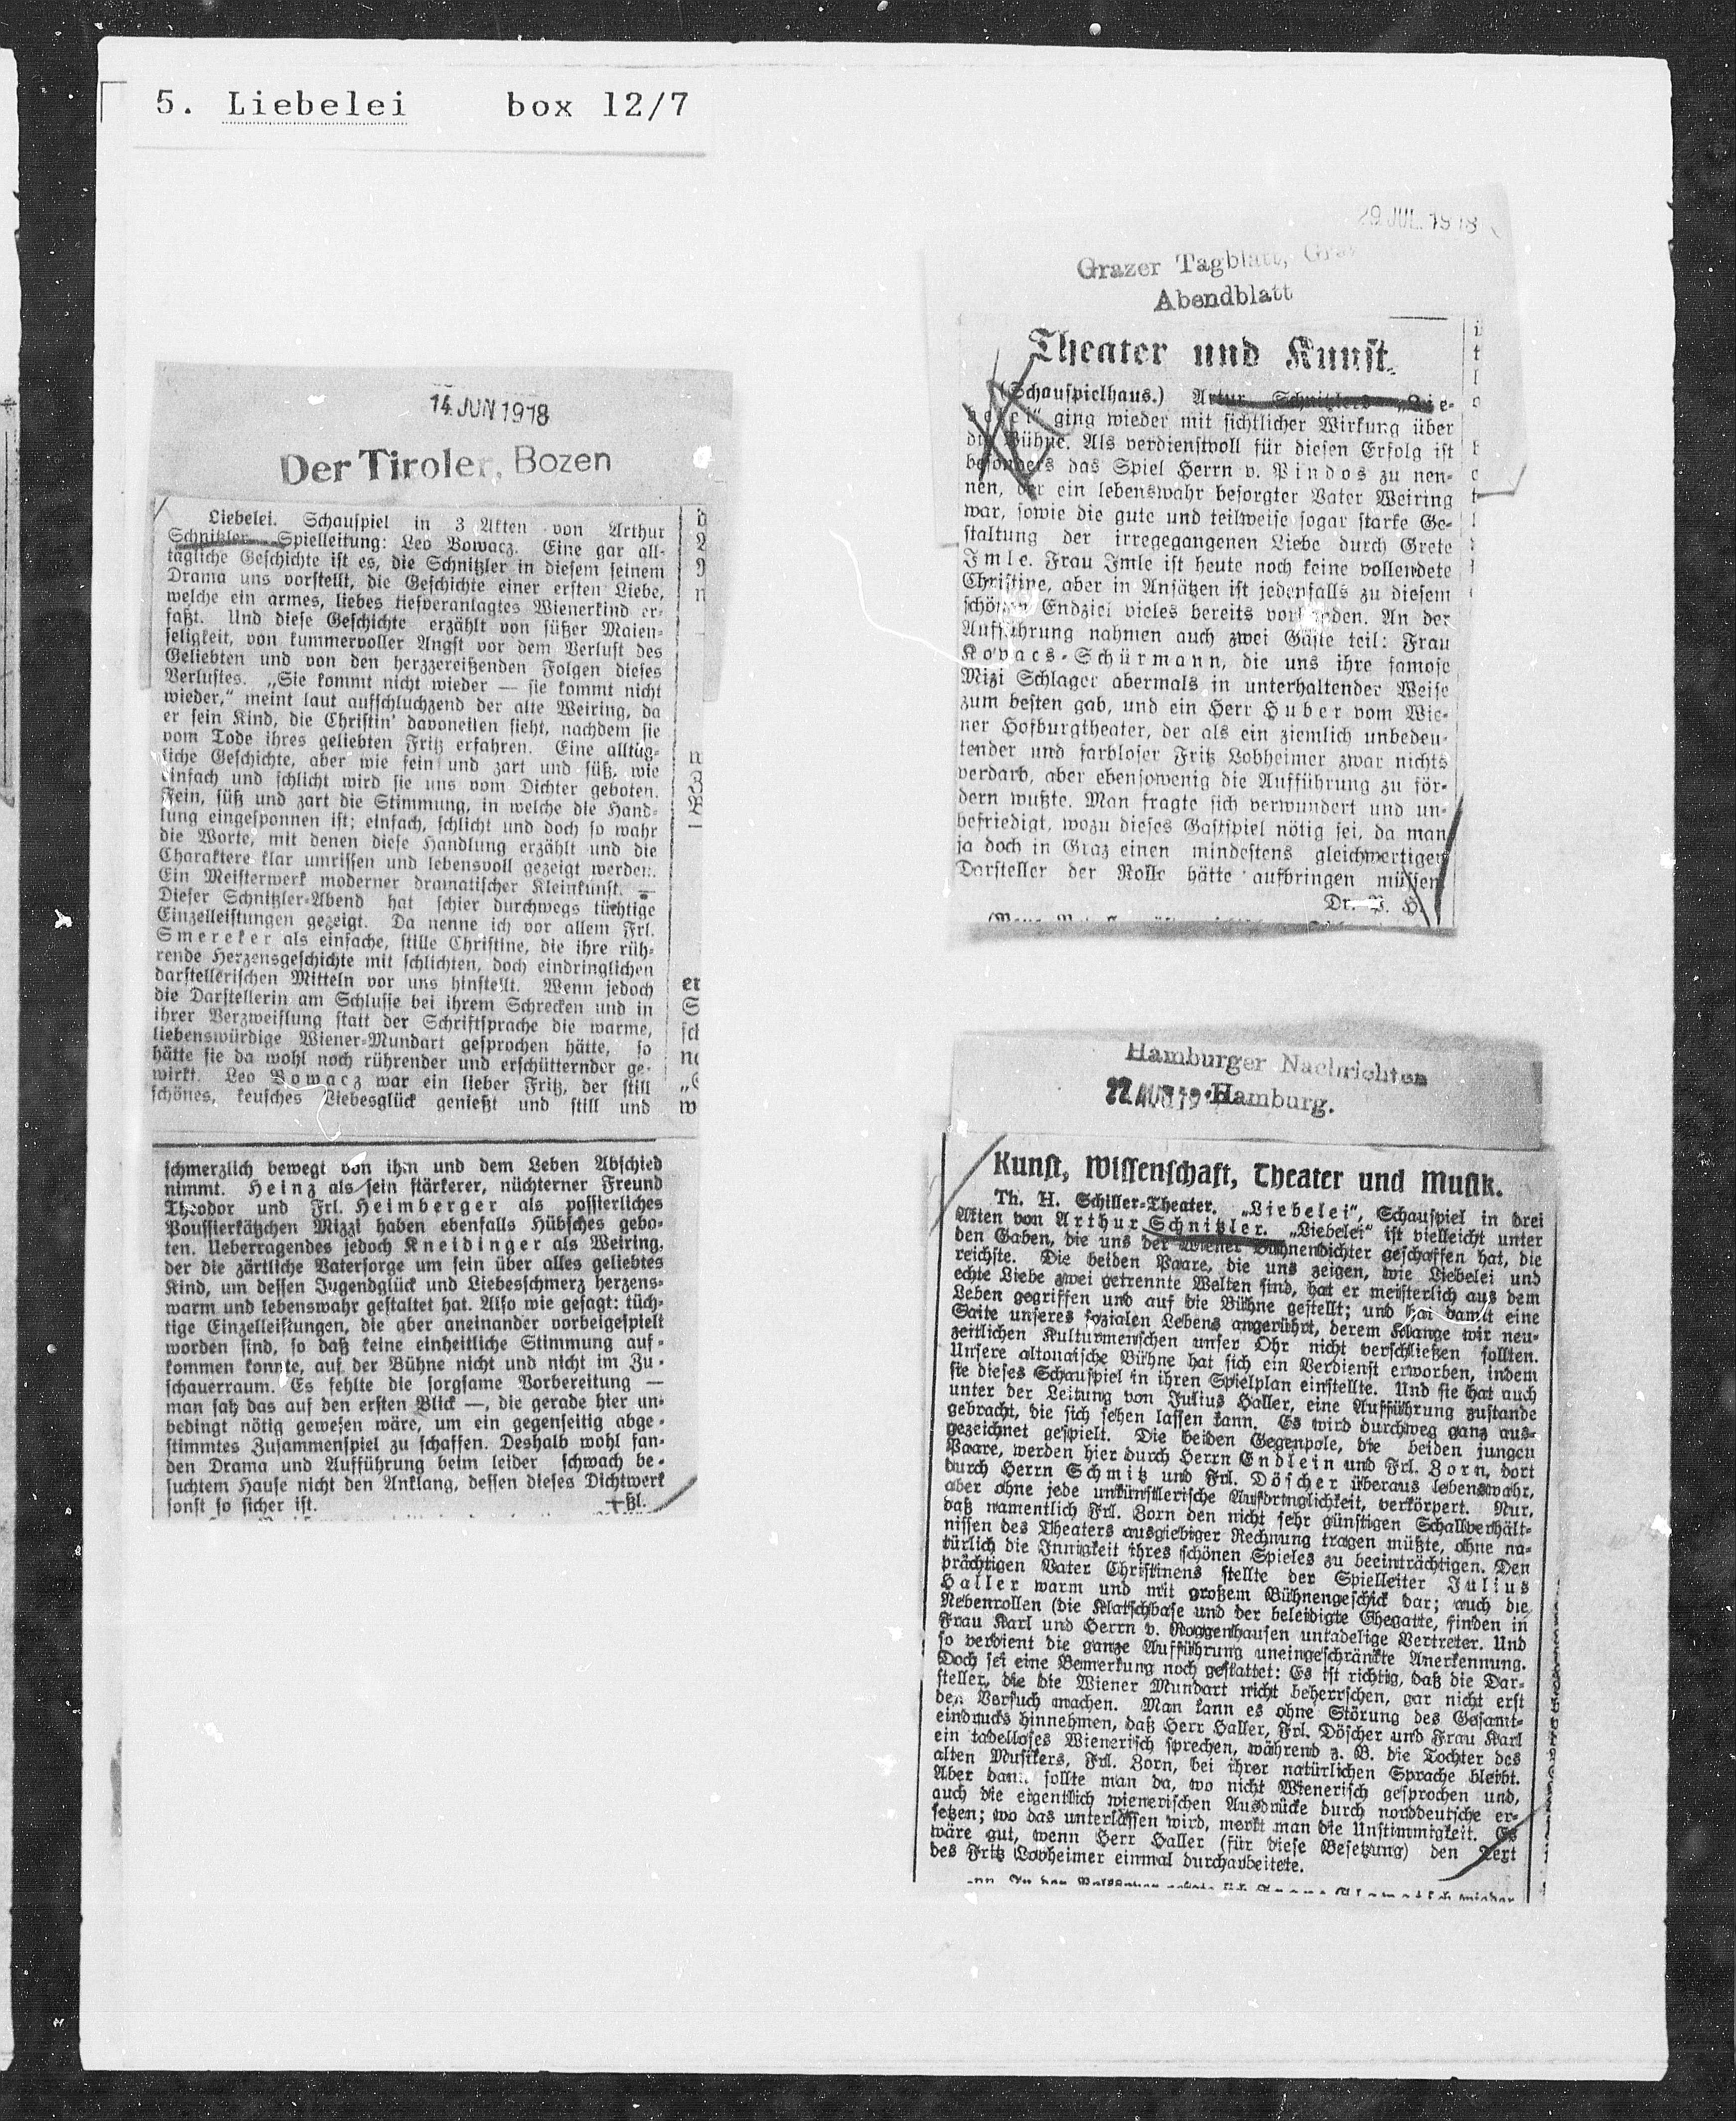 5. Liebelei box 12/7
14. JUN 1918
Der Tiroler, Bozen
Liebelei. Schauspiel in 3 Akten von Arthur
Schnitzler. Spielleitung: Leo Bowacz. Eine gar all-
tägliche Geschichte ist es, die Schnitzler in diesem seinem
Drama uns vorstellt, die Geschichte einer ersten Liebe,
welche ein armes, liebes tiefveranlagtes Wienerkind er-
faßt. Und diese Geschichte erzählt von süßer Maien-
seligkeit, von kummervoller Angst vor dem Verlust des
Geliebten und von den herzzereißenden Folgen dieses
Verlustes. „Sie kommt nicht wieder — sie kommt nicht
wieder,“ meint laut aufschluchzend der alte Weiring, da
er sein Kind, die Christin' davoneilen sieht, nachdem sie
vom Tode ihres geliebten Fritz erfahren. Eine alltäg-
liche Geschichte, aber wie fein und zart und süß, wie
einfach und schlicht wird sie uns vom Dichter geboten.
Fein, süß und zart die Stimmung, in welche die Hand-
lung eingesponnen ist; einfach, schlicht und doch so wahr
die Worte, mit denen diese Handlung erzählt und die
Charaktere klar umrissen und lebensvoll gezeigt werden.
Ein Meisterwerk moderner dramatischer Kleinkunst. —
Dieser Schnitzler-Abend hat schier durchwegs tüchtige
Einzelleistungen gezeigt. Da nenne ich vor allem Frl.
Smereker als einfache, stille Christine, die ihre rüh-
rende Herzensgeschichte mit schlichten, doch eindringlichen
darstellerischen Mitteln vor uns hinstellt. Wenn jedoch
die Darstellerin am Schlusse bei ihrem Schrecken und in
ihrer Verzweiflung statt der Schriftsprache die warme,
liebenswürdige Wiener-Mundart gesprochen hätte, so
hätte sie da wohl noch rührender und erschütternder ge-
wirkt. Leo Bowacz war ein lieber Fritz, der still
schönes, keusches Liebesglück genießt und still und
schmerzlich bewegt von ihm und dem Leben Abschied
nimmt. Heinz als sein stärkerer, nüchterner Freund
Theodor und Frl. Heimberger als possierliches
Poussierkätzchen Mizzi haben ebenfalls Hübsches gebo-
ten. Ueberragendes jedoch Kneidinger als Weiring,
der die zärtliche Vatersorge um sein über alles geliebtes
Kind, um dessen Jugendglück und Liebesschmerz herzens-
warm und lebenswahr gestaltet hat. Also wie gesagt: tüch-
tige Einzelleistungen, die aber aneinander vorbeigespielt
worden sind, so daß keine einheitliche Stimmung auf-
kommen konnte, auf der Bühne nicht und nicht im Zu-
schauerraum. Es fehlte die sorgsame Vorbereitung —
man sah das auf den ersten Blick —, die gerade hier un-
bedingt nötig gewesen wäre, um ein gegenseitig abge-
stimmtes Zusammenspiel zu schaffen. Deshalb wohl fan-
den Drama und Aufführung beim leider schwach be-
suchtem Hause nicht den Anklang, dessen dieses Dichtwerk
sonst so sicher ist. +ßl.
29 JUL. 1918
Grazer Tagblatt, Graz
Abendblatt
Theater und Kunst.
(Schauspielhaus.) Artur Schnitzlers „Lie-
belei“ ging wieder mit sichtlicher Wirkung über
die Bühne. Als verdienstvoll für diesen Erfolg ist
besonders das Spiel Herrn v. Pindos zu nen-
nen, der ein lebenswahr besorgter Vater Weiring
war, sowie die gute und teilweise sogar starke Ge-
staltung der irregegangenen Liebe durch Grete
Imle. Frau Imle ist heute noch keine vollendete
Christine, aber in Ansätzen ist jedenfalls zu diesem
schönen Endziel vieles bereits vorhanden. An der
Aufführung nahmen auch zwei Gäste teil: Frau
Kovacs-Schürmann, die uns ihre famose
Mizi Schlager abermals in unterhaltender Weise
zum besten gab, und ein Herr Huber vom Wie-
ner Hofburgtheater, der als ein ziemlich unbedeu-
tender und farbloser Fritz Lobheimer zwar nichts
verdarb, aber ebensowenig die Aufführung zu för-
dern wußte. Man fragte sich verwundert und un-
befriedigt, wozu dieses Gastspiel nötig sei, da man
ja doch in Graz einen mindestens gleichwertigen
Darsteller der Rolle hätte aufbringen müssen.
Dr. P. H.
Hamburger Nachrichten
22. AUG 19 Hamburg.
Kunst, Wissenschaft, Theater und Musik.
Th. H. Schiller-Theater. „Liebelei“, Schauspiel in drei
Akten von Arthur Schnitzler. „Liebelei“ ist vielleicht unter
den Gaben, die uns der Wiener Bühnendichter geschaffen hat, die
reichste. Die beiden Paare, die uns zeigen, wie Liebelei und
echte Liebe zwei getrennte Welten sind, hat er meisterlich aus dem
Leben gegriffen und auf die Bühne gestellt; und hat damit eine
Saite unseres sozialen Lebens angerührt, derem Klange wir neu-
zeitlichen Kulturmenschen unser Ohr nicht verschließen sollten.
Unsere altonaische Bühne hat sich ein Verdienst erworben, indem
sie dieses Schauspiel in ihren Spielplan einstellte. Und sie hat auch
unter der Leitung von Julius Haller, eine Aufführung zustande
gebracht, die sich sehen lassen kann. Es wird durchweg ganz aus-
gezeichnet gespielt. Die beiden Gegenpole, die beiden jungen
Paare, werden hier durch Herrn Endlein und Frl. Zorn, dort
durch Herrn Schmitz und Frl. Döscher überaus lebenswahr,
aber ohne jede unkünstlerische Aufdringlichkeit, verkörpert. Nur,
daß namentlich Frl. Zorn den nicht sehr günstigen Schallverhält-
nissen des Theaters ausgiebiger Rechnung tragen müßte, ohne na-
türlich die Innigkeit ihres schönen Spieles zu beeinträchtigen. Den
prächtigen Vater Christinens stellte der Spielleiter Julius
Haller warm und mit großem Bühnengeschick dar; auch die
Nebenrollen (die Klatschbase und der beleidigte Ehegatte, finden in
Frau Karl und Herrn v. Roggenhausen untadelige Vertreter. Und
so verdient die ganze Aufführung uneingeschränkte Anerkennung.
Doch sei eine Bemerkung noch gestattet: Es ist richtig, daß die Dar-
steller, die die Wiener Mundart nicht beherrschen, gar nicht erst
den Versuch machen. Man kann es ohne Störung des Gesamt-
eindrucks hinnehmen, daß Herr Haller, Frl. Döscher und Frau Karl
ein tadelloses Wienerisch sprechen, während z. B. die Tochter des
alten Musikers, Frl. Zorn, bei ihrer natürlichen Sprache bleibt.
Aber dann sollte man da, wo nicht Wienerisch gesprochen und,
auch die eigentlich wienerischen Ausdrücke durch norddeutsche er-
setzen; wo das unterlassen wird, merkt man die Unstimmigkeit. Es
wäre gut, wenn Herr Haller (für diese Besetzung) den Text
des Fritz Lobheimer einmal durcharbeitete.